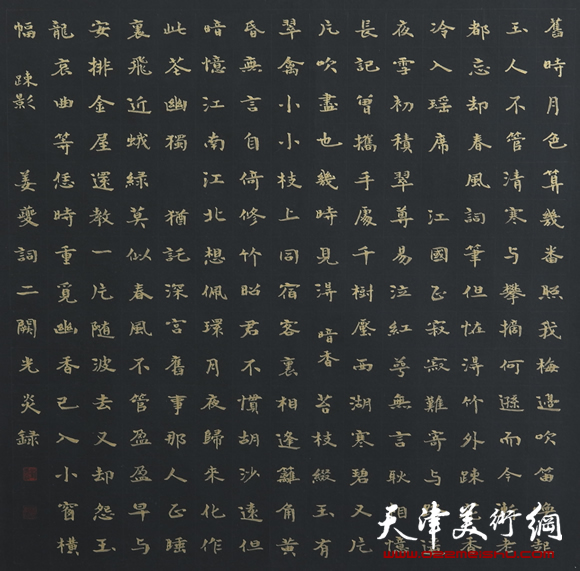 舊時月色算幾番照我梅邊吹笛喚起
玉人不管清寒与攀摘何遜而今漸老
都忘却春風詞筆但怪淂竹外疎花香
冷入瑶席 江國正寂寂難寄与遥
夜雪初積翠尊易泣紅萼無言耿相憶
長記曾攜手處千樹壓西湖寒碧又片
片吹盡也幾時見淂 暗香 苔枝綴玉有
翠禽小小枝上同宿客裏相逢籬角黃
昏無言自倚修竹昭君不慣胡沙遠但
暗憶江南江北想佩環月夜歸來化作
此芲幽獨 猶託深宮舊事那人正睡
裏飛近蛾綠莫似春風不管盈盈早与
安排金屋還教一片随波去又却怨玉
龍哀曲等恁時重覓幽香已入小窗橫
幅 疎影 姜夔詞二闋光炎録
天津美術網